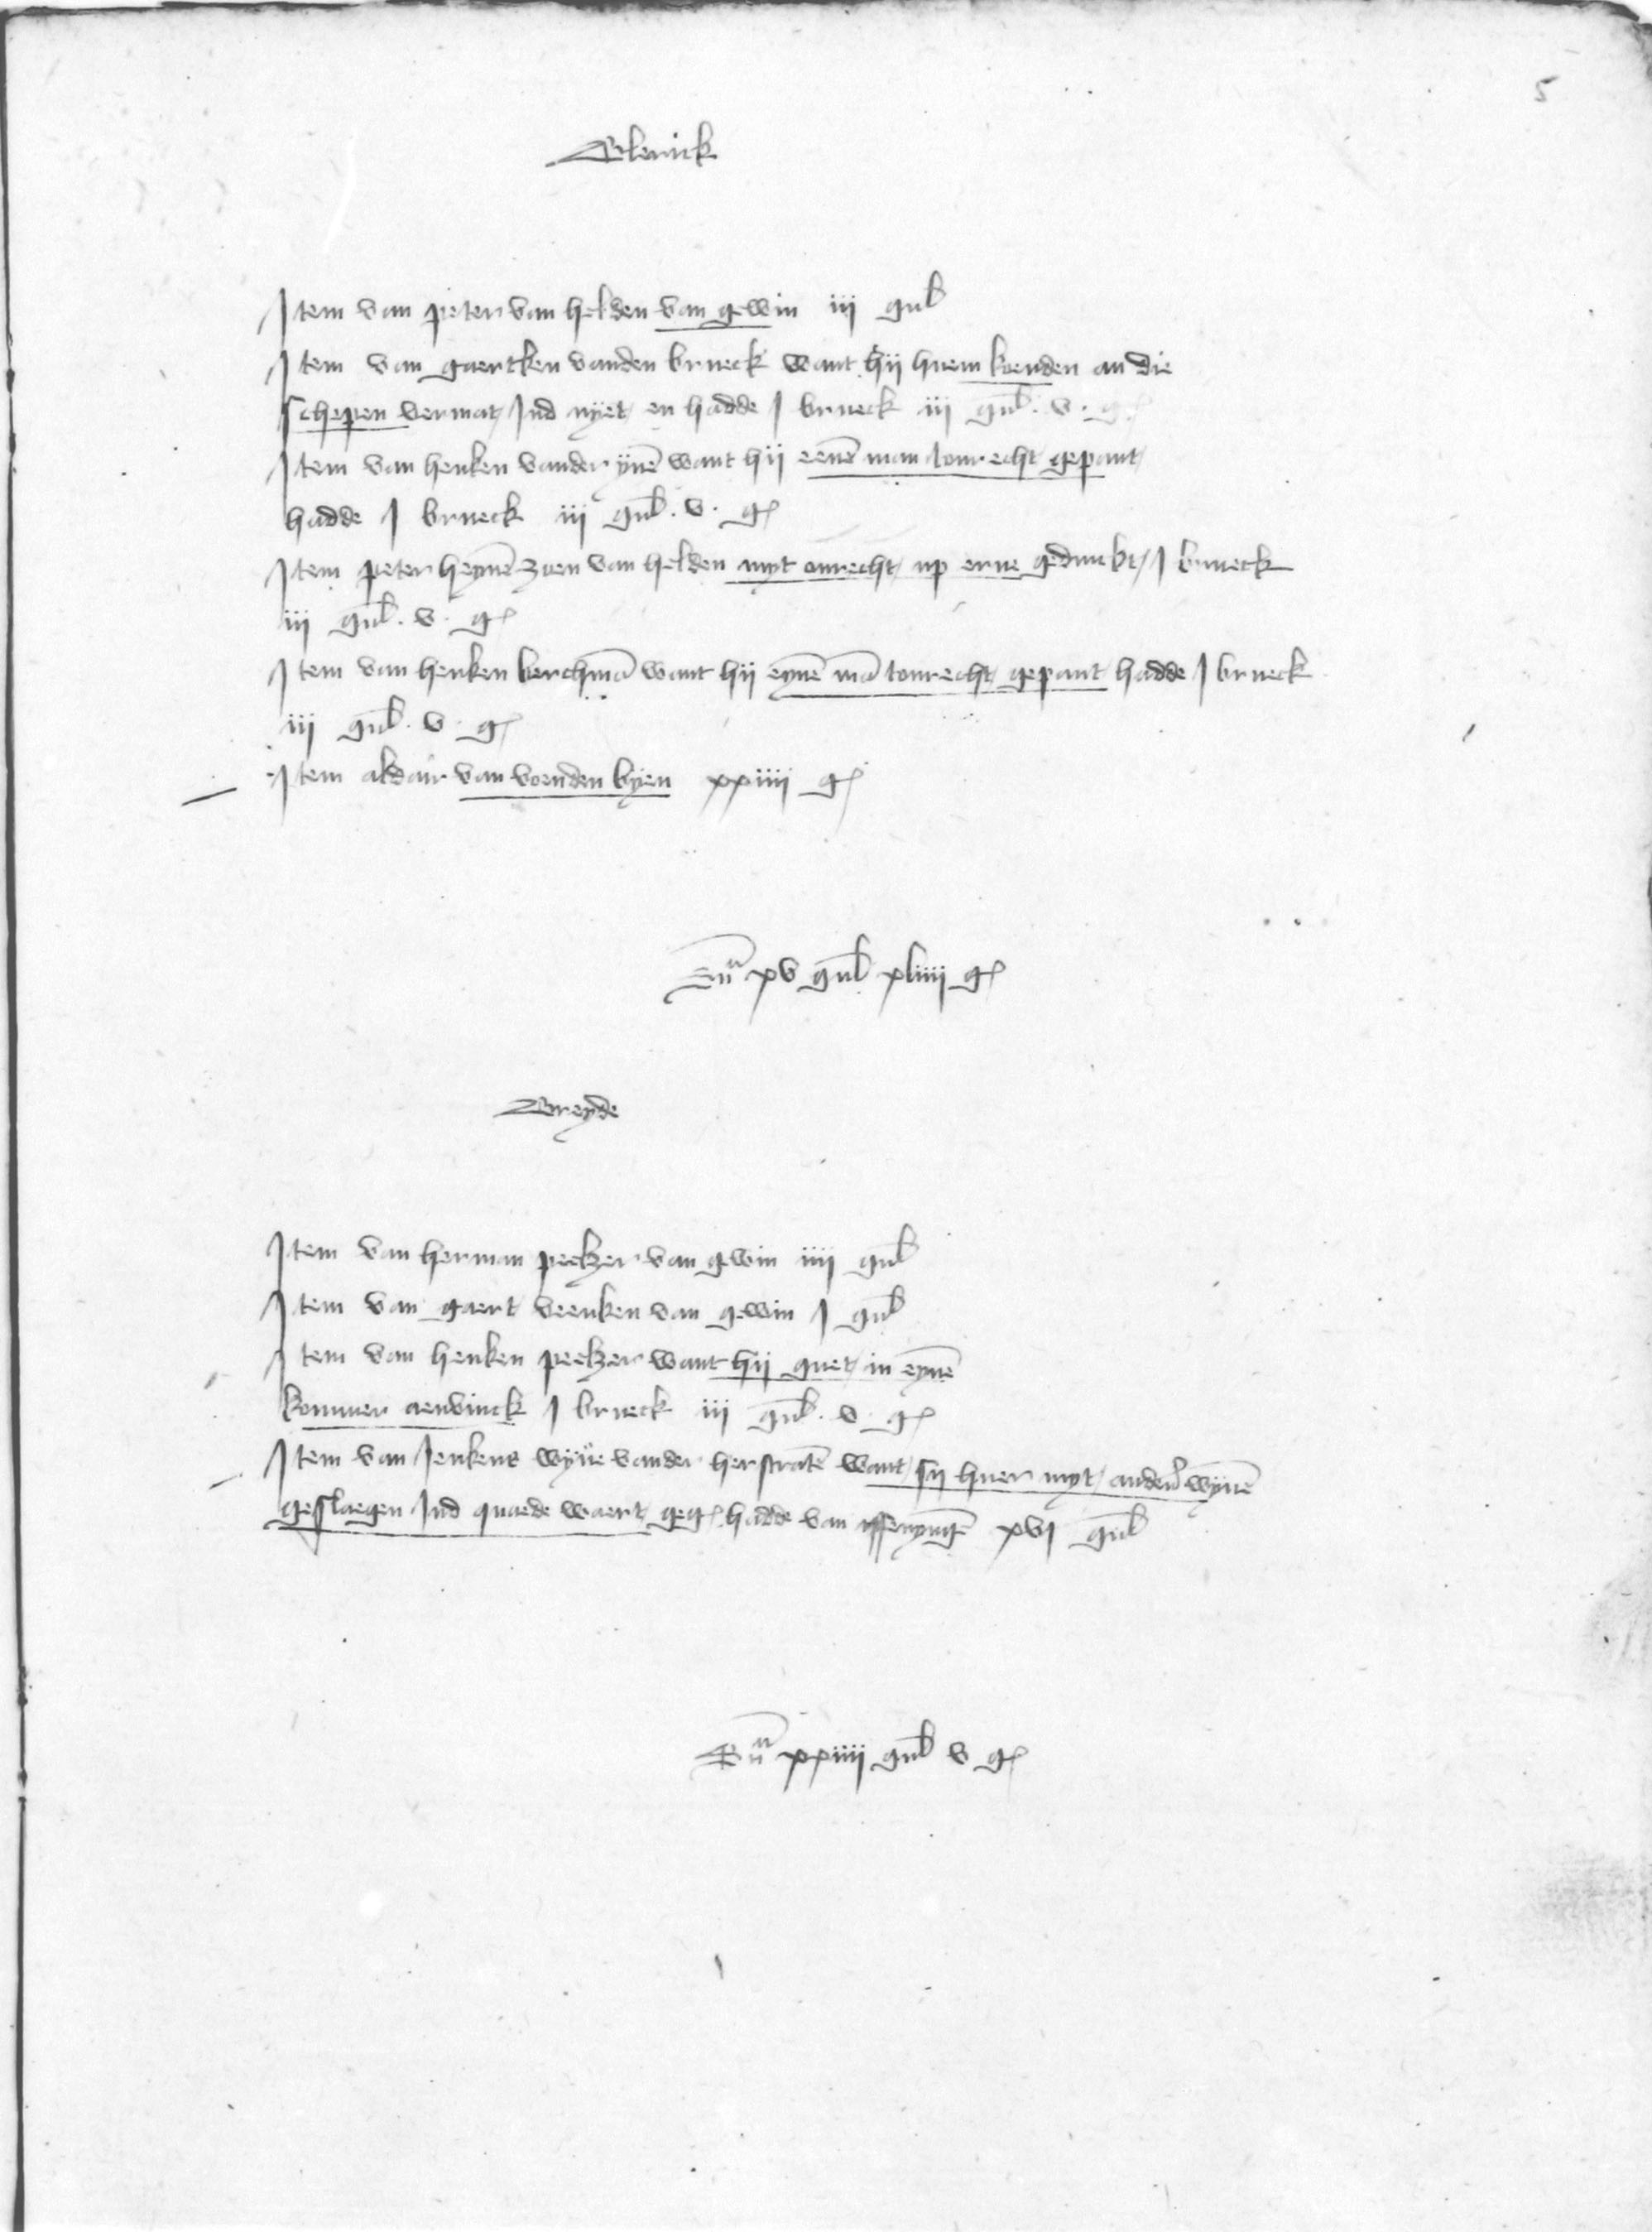 5
Blerick
Item van peter van helden van gewin iij gul
Item van gaertken vanden brueck want hij huem koenden an die
schepen vermat Ind nyet en hadde j brueck iij gul. v. g
Item van henken vander ynē want hij eenē man tonrecht gepant
hadde j brueck iij gul. v. g
Item peter heynē zoen van helden myt onrecht up erue gedunkt j brueck
iij gul. v. g
Item van henken berchmā want hij eynē mā tonrecht gepant hadde j brueck
iij gul. v. g
Item aldair van voenden byen xxiiij g
Sūa xv gul xliiij g
Breyde
Item van herman peelzer van gewin iiij gul
Item van gaert veenken van gewin j gul
Item van henken peelzer want hij guet in eynē
kommer aenvinck j brueck iij gul. v. g
Item van Jenkens wyue vander herstratē want sij huer myt anderē wyuē
geslaegen Ind quaede waert geg hadde van xvj gul
Sūa xxiiij gul v g